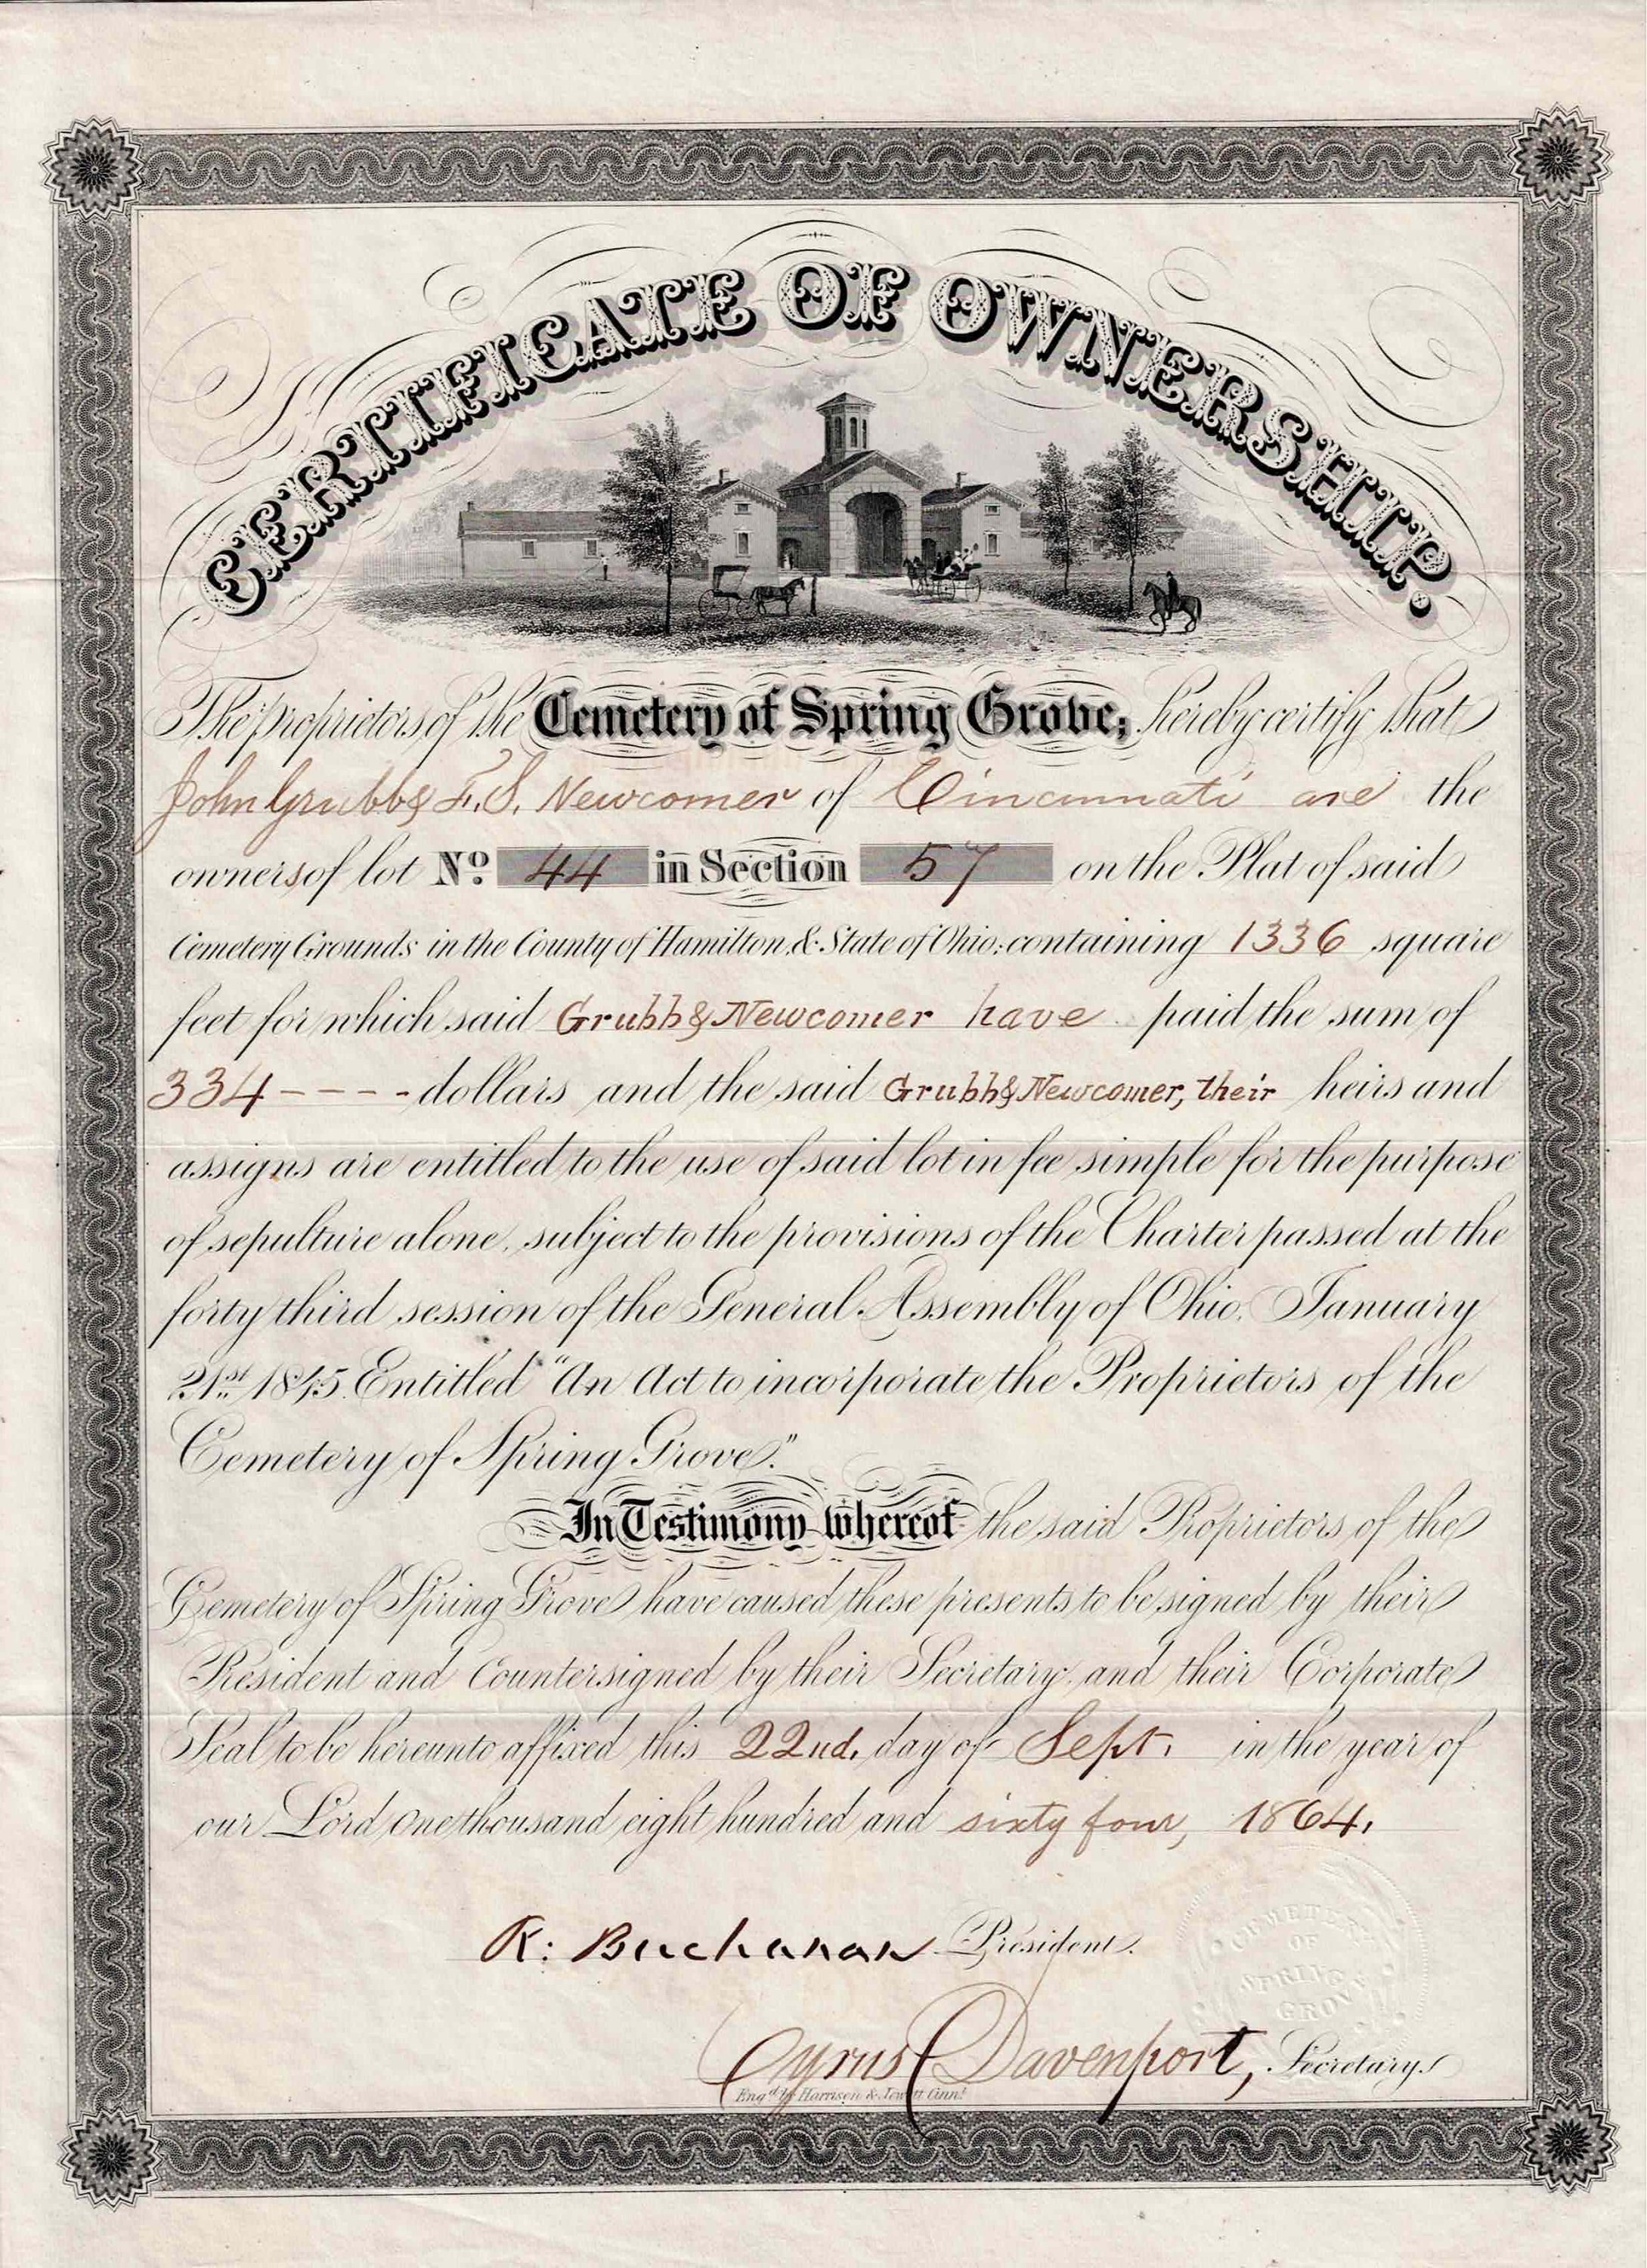 CERTIFICATE OF OWNERSHIP.
The proprietors of the Cemetery of Spring Grove, hereby certify that
John Grubb & F. S. Newcomer of Cincinnati are the
owners of lot No. 44 in Section 57 on the Plat of said
Cemetery Grounds in the County of Hamilton, & State of Ohio: containing 1336 square
feet for which said Grubb & Newcomer have paid the sum of
334 - - - - dollars and the said Grubb & Newcomer, their heirs and
assigns are entitled to the use of said lot in fee simple for the purpose
of sepulture alone, subject to the provisions of the Charter passed at the
forty third session of the General Assembly of Ohio, January
21st 1845 Entitled "An Act to incorporate the Proprietors of the
Cemetery of Spring Grove."
In Testimony whereof the said Proprietors of the
Cemetery of Spring Grove have caused these presents to be signed by their
President and Countersigned by their Secretary, and their Corporate
Seal to be hereunto affixed this 22nd. day of Sept. in the year of
our Lord one thousand eight hundred and sixty four, 1864.
CEMETERY
OF
SPRING
GROVE
R: Buchanan President.
Cyrus Davenport, Secretary.
Engd. by Harrison & Jewett Cinn!